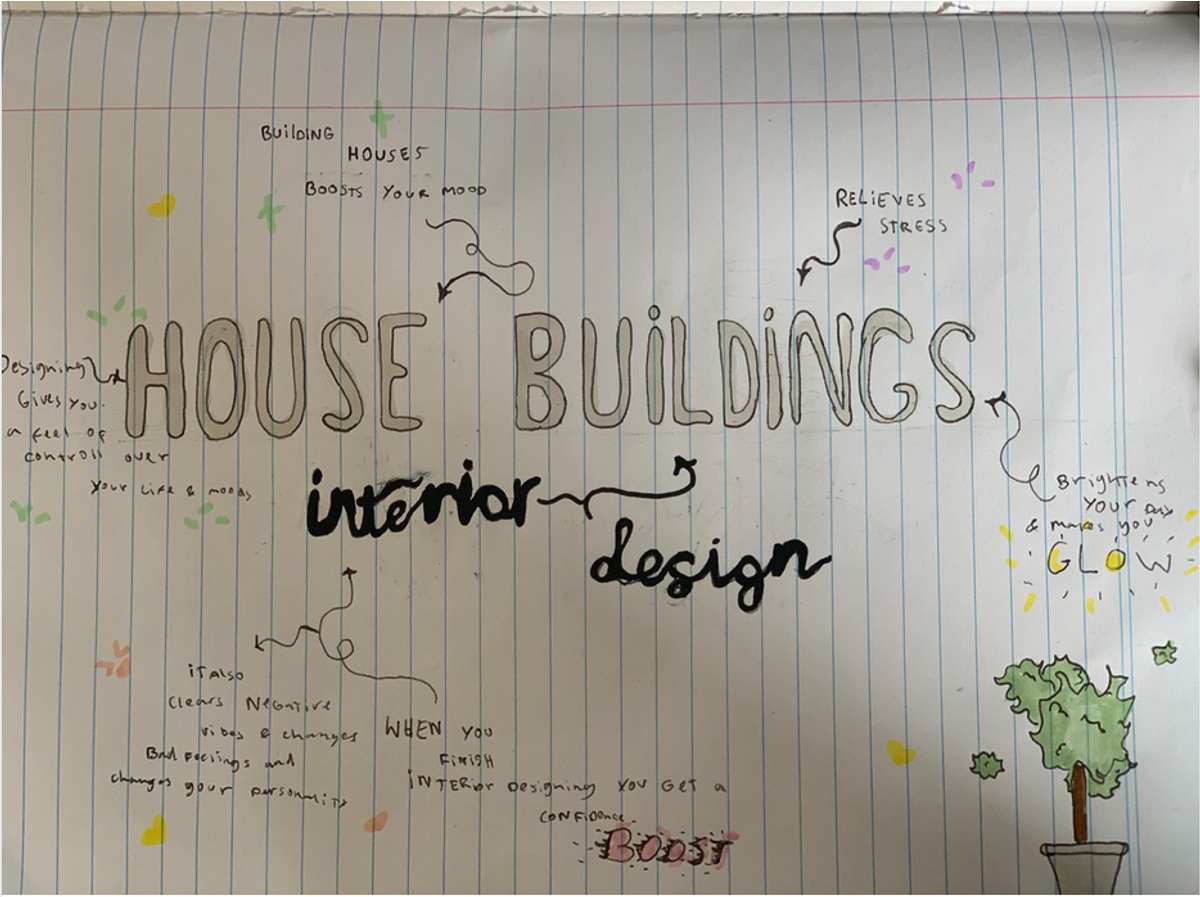 BUilDING
HOUSES
BOOSTS YOUR MOOD
RELiEVES
STRESS
HOUSE BUiLDiNGS
Designing
Gives you
a feel of
controll over
Your life & moods
interior
design
Brightens
YOUR Day
& makes you
GLOW
iT Also
Clears Negative
vibes & changes
Bad Feelings and
changes your personality
WHEN YOU
FiNiSH
iNTERior Designing You Get a
CONFiDence
BOOST